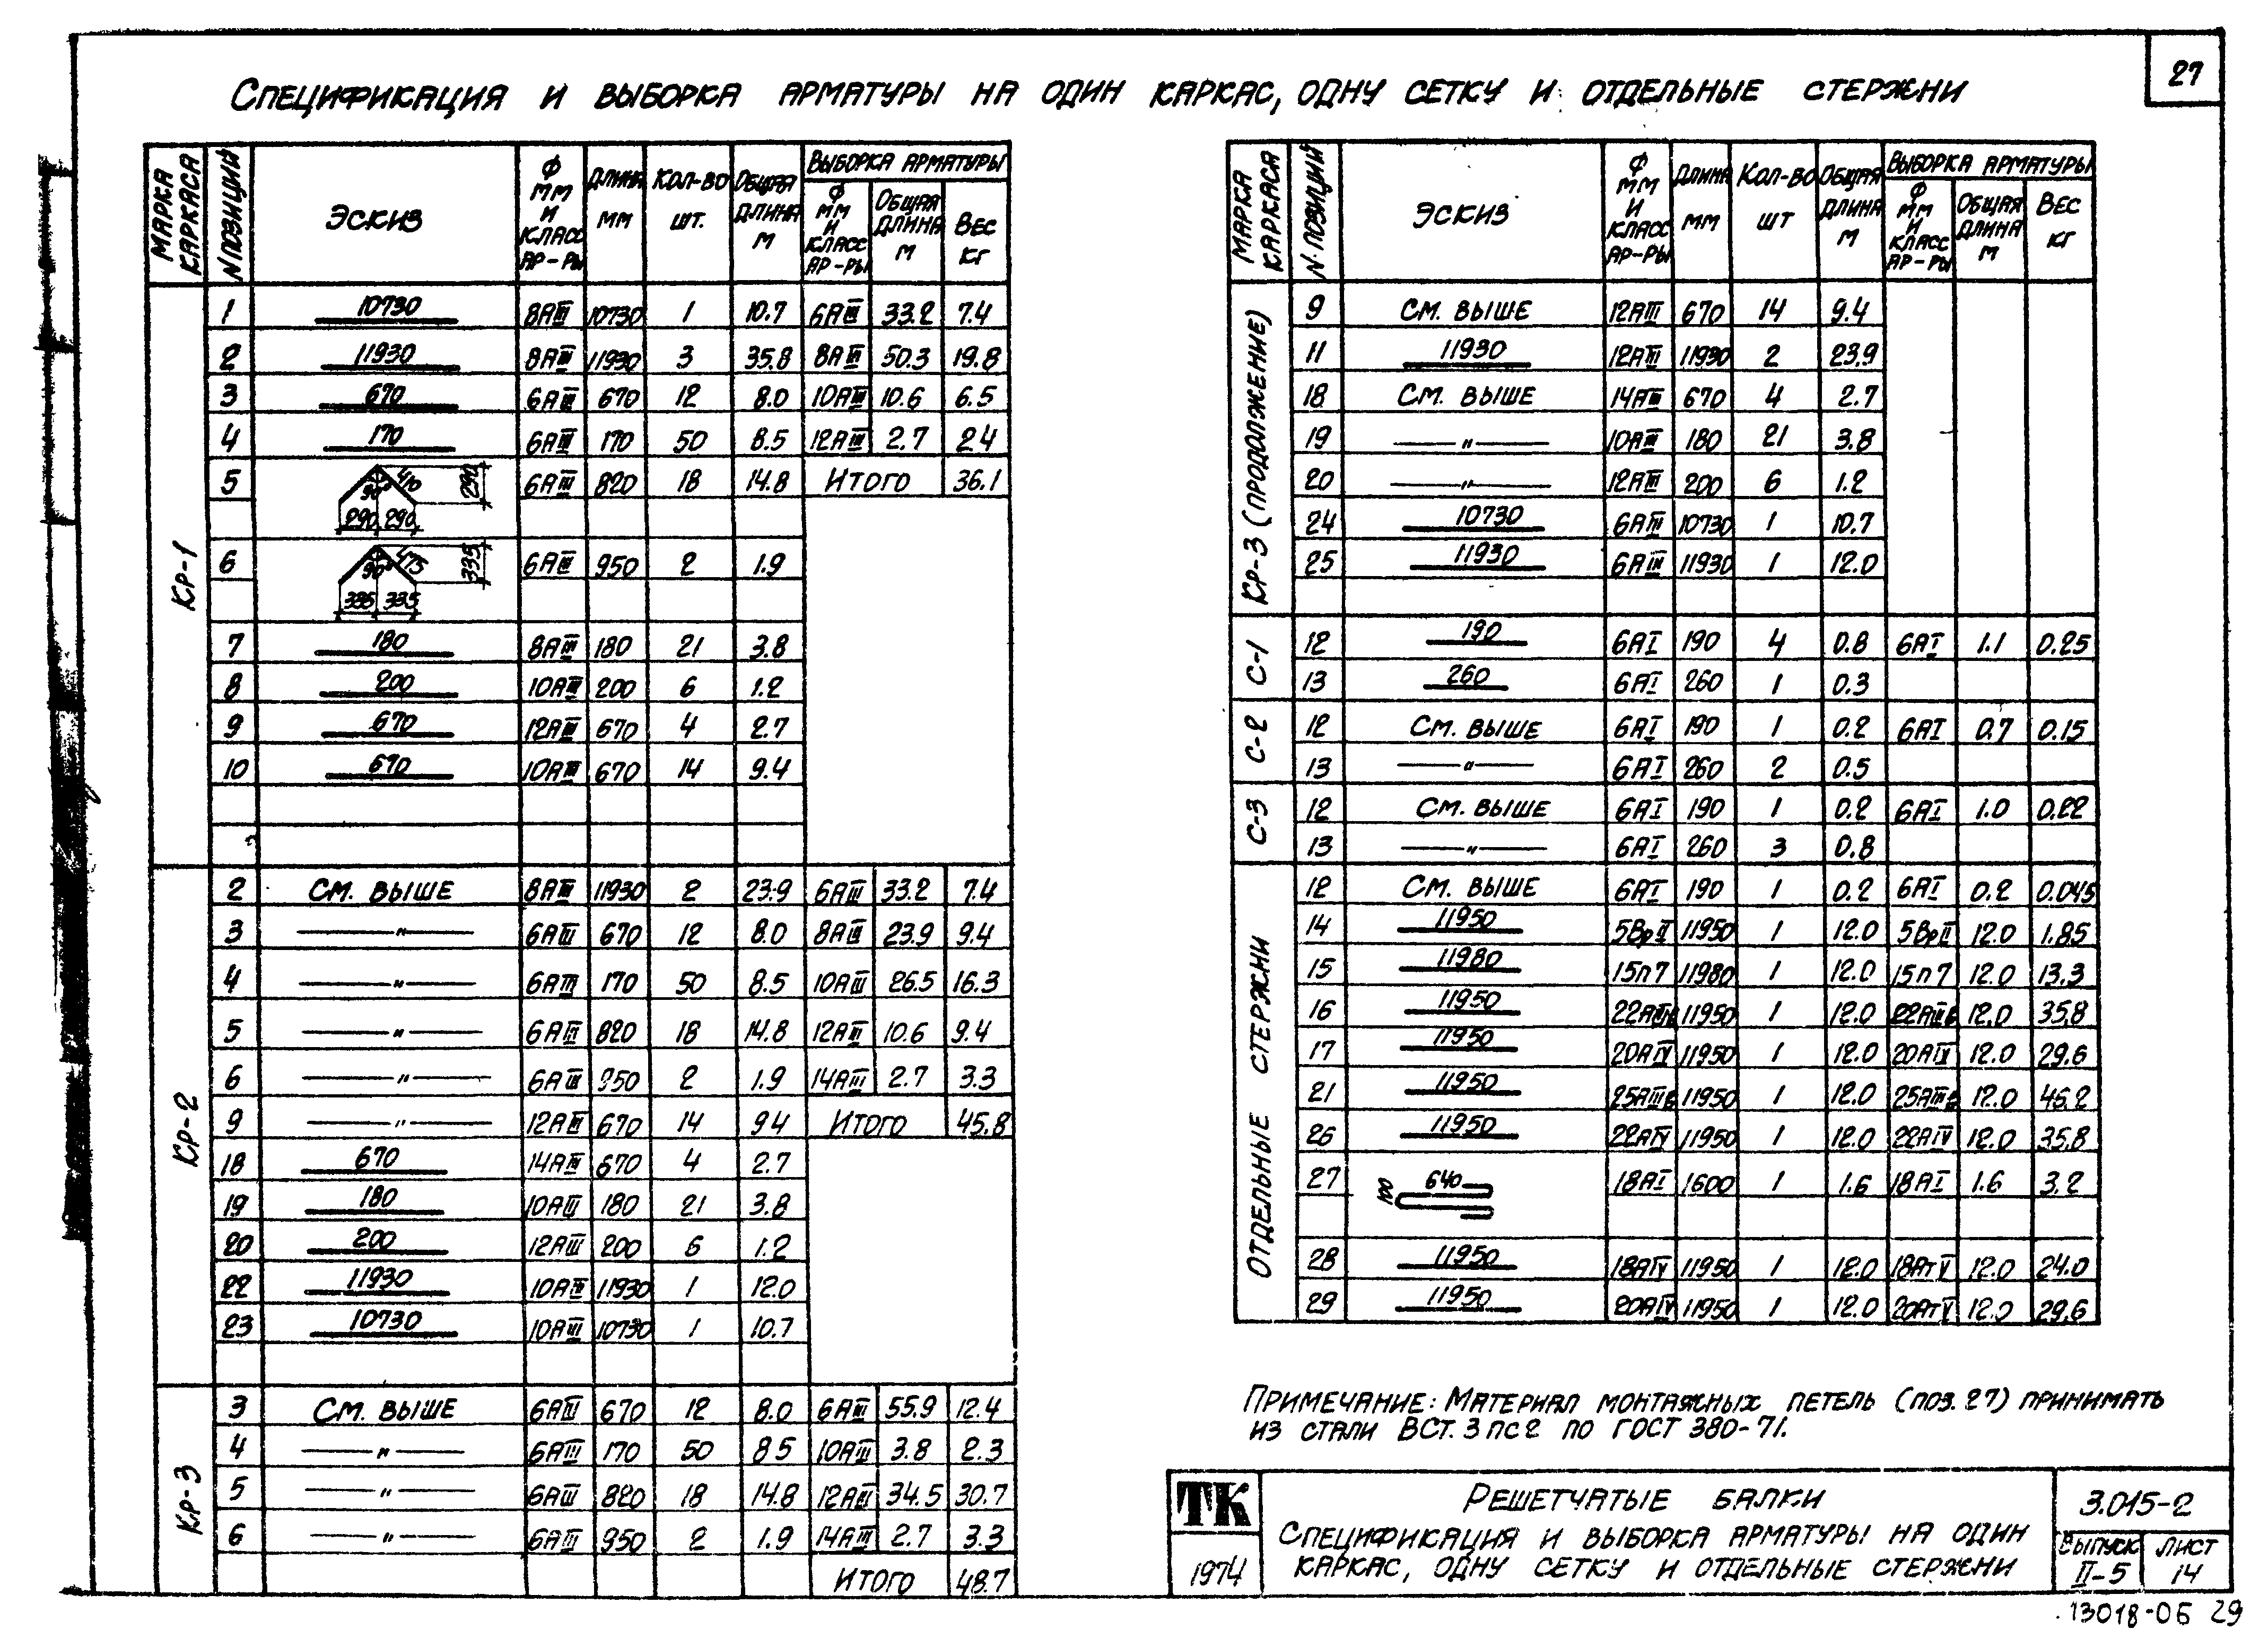 27
Спецификация и выборка арматуры на один каркас, одну сетку и отдельные стержни
Марка каркаса | N позиций | Эскиз | Ф мм и класс ар-ры | Длина мм | Кол-во шт. | Общая длина м | Выборка арматуры: Ф мм и класс ар-ры | Общая длина м | Вес кг
Кр-1
1 | 10730 | 8АIII | 10730 | 1 | 10.7 | 6АIII | 33.2 | 7.4
2 | 11930 | 8АIII | 11930 | 3 | 35.8 | 8АIII | 50.3 | 19.8
3 | 670 | 6АIII | 670 | 12 | 8.0 | 10АIII | 10.6 | 6.5
4 | 170 | 6АIII | 170 | 50 | 8.5 | 12АIII | 2.7 | 2.4
5 | 90° 410 290 290 290 | 6АIII | 820 | 18 | 14.8 | Итого | 36.1
6 | 90° 475 335 335 335 | 6АIII | 950 | 2 | 1.9
7 | 180 | 8АIII | 180 | 21 | 3.8
8 | 200 | 10АIII | 200 | 6 | 1.2
9 | 670 | 12АIII | 670 | 4 | 2.7
10 | 670 | 10АIII | 670 | 14 | 9.4
Кр-2
2 | См. выше | 8АIII | 11930 | 2 | 23.9 | 6АIII | 33.2 | 7.4
3 | —"— | 6АIII | 670 | 12 | 8.0 | 8АIII | 23.9 | 9.4
4 | —"— | 6АIII | 170 | 50 | 8.5 | 10АIII | 26.5 | 16.3
5 | —"— | 6АIII | 820 | 18 | 14.8 | 12АIII | 10.6 | 9.4
6 | —"— | 6АIII | 950 | 2 | 1.9 | 14АIII | 2.7 | 3.3
9 | —"— | 12АIII | 670 | 14 | 9.4 | Итого | 45.8
18 | 670 | 14АIII | 670 | 4 | 2.7
19 | 180 | 10АIII | 180 | 21 | 3.8
20 | 200 | 12АIII | 200 | 6 | 1.2
22 | 11930 | 10АIII | 11930 | 1 | 12.0
23 | 10730 | 10АIII | 10730 | 1 | 10.7
Кр-3
3 | См. выше | 6АIII | 670 | 12 | 8.0 | 6АIII | 55.9 | 12.4
4 | —"— | 6АIII | 170 | 50 | 8.5 | 10АIII | 3.8 | 2.3
5 | —"— | 6АIII | 820 | 18 | 14.8 | 12АIII | 34.5 | 30.7
6 | —"— | 6АIII | 950 | 2 | 1.9 | 14АIII | 2.7 | 3.3
Итого | 48.7
Марка каркаса | N. позиций | Эскиз | Ф мм и класс ар-ры | Длина мм | Кол-во шт | Общая длина м | Выборка арматуры: Ф мм и класс ар-ры | Общая длина м | Вес кг
Кр-3 (продолжение)
9 | См. выше | 12АIII | 670 | 14 | 9.4
11 | 11930 | 12АIII | 11930 | 2 | 23.9
18 | См. выше | 14АIII | 670 | 4 | 2.7
19 | —"— | 10АIII | 180 | 21 | 3.8
20 | —"— | 12АIII | 200 | 6 | 1.2
24 | 10730 | 6АIII | 10730 | 1 | 10.7
25 | 11930 | 6АIII | 11930 | 1 | 12.0
С-1
12 | 190 | 6АI | 190 | 4 | 0.8 | 6АI | 1.1 | 0.25
13 | 260 | 6АI | 260 | 1 | 0.3
С-2
12 | См. выше | 6АI | 190 | 1 | 0.2 | 6АI | 0.7 | 0.15
13 | —"— | 6АI | 260 | 2 | 0.5
С-3
12 | См. выше | 6АI | 190 | 1 | 0.2 | 6АI | 1.0 | 0.22
13 | —"— | 6АI | 260 | 3 | 0.8
Отдельные стержни
12 | См. выше | 6АI | 190 | 1 | 0.2 | 6АI | 0.2 | 0.045
14 | 11950 | 5ВрII | 11950 | 1 | 12.0 | 5ВрII | 12.0 | 1.85
15 | 11980 | 15п7 | 11980 | 1 | 12.0 | 15п7 | 12.0 | 13.3
16 | 11950 | 22АIIIв | 11950 | 1 | 12.0 | 22АIIIв | 12.0 | 35.8
17 | 11950 | 20АIV | 11950 | 1 | 12.0 | 20АIV | 12.0 | 29.6
21 | 11950 | 25АIIIв | 11950 | 1 | 12.0 | 25АIIIв | 12.0 | 46.2
26 | 11950 | 22АIV | 11950 | 1 | 12.0 | 22АIV | 12.0 | 35.8
27 | 100 640 | 18АI | 1600 | 1 | 1.6 | 18АI | 1.6 | 3.2
28 | 11950 | 11950 | 1 | 12.0 | 18АтV | 12.0 | 24.0
29 | 11950 | 11950 | 1 | 12.0 | 20АтV | 12.0 | 29.6
Примечание: Материал монтажных петель (поз. 27) принимать
из стали ВСт. 3 пс2 по ГОСТ 380-71.
ТК
1974
Решетчатые балки
Спецификация и выборка арматуры на один
каркас, одну сетку и отдельные стержни
3.015-2
Выпуск II-5
Лист 14
13018-06 29